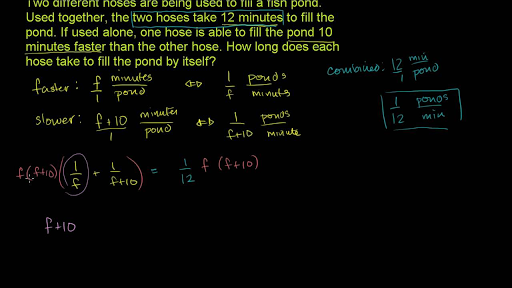 Two different hoses are being used to fill a fish pond.
Used together, the two hoses take 12 minutes to fill the
pond. If used alone, one hose is able to fill the pond 10
minutes faster than the other hose. How long does each
hose take to fill the pond by itself?
combined. 12/1 min/pond
1/12 ponds/min
faster: f/1 minutes/pond ⇔ 1/f ponds/minutes
slower: f+10/1 minutes/pond ⇔ 1/f+10 ponds/minute
f(f+10)(1/f + 1/f+10) = 1/12 f (f+10)
f+10